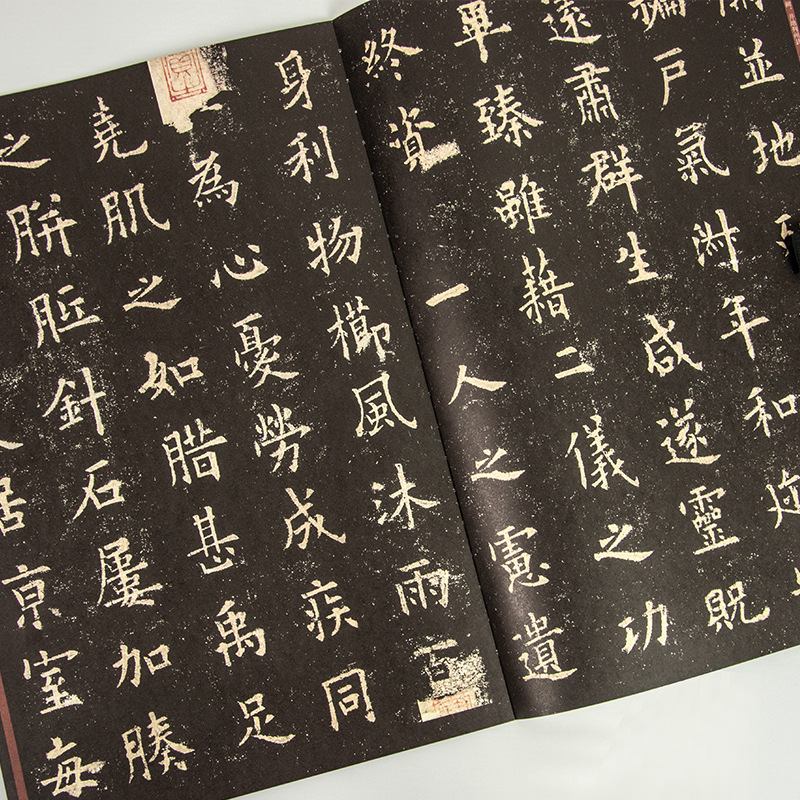 並地
戶氣淑年和
遠肅群生咸遂靈貺
畢臻雖藉二儀之功
終資一人之慮遺
身利物櫛風沐雨百
為心憂勞成疾同
堯肌之如腊甚禹足
之胼胝針石屢加腠
居京室每